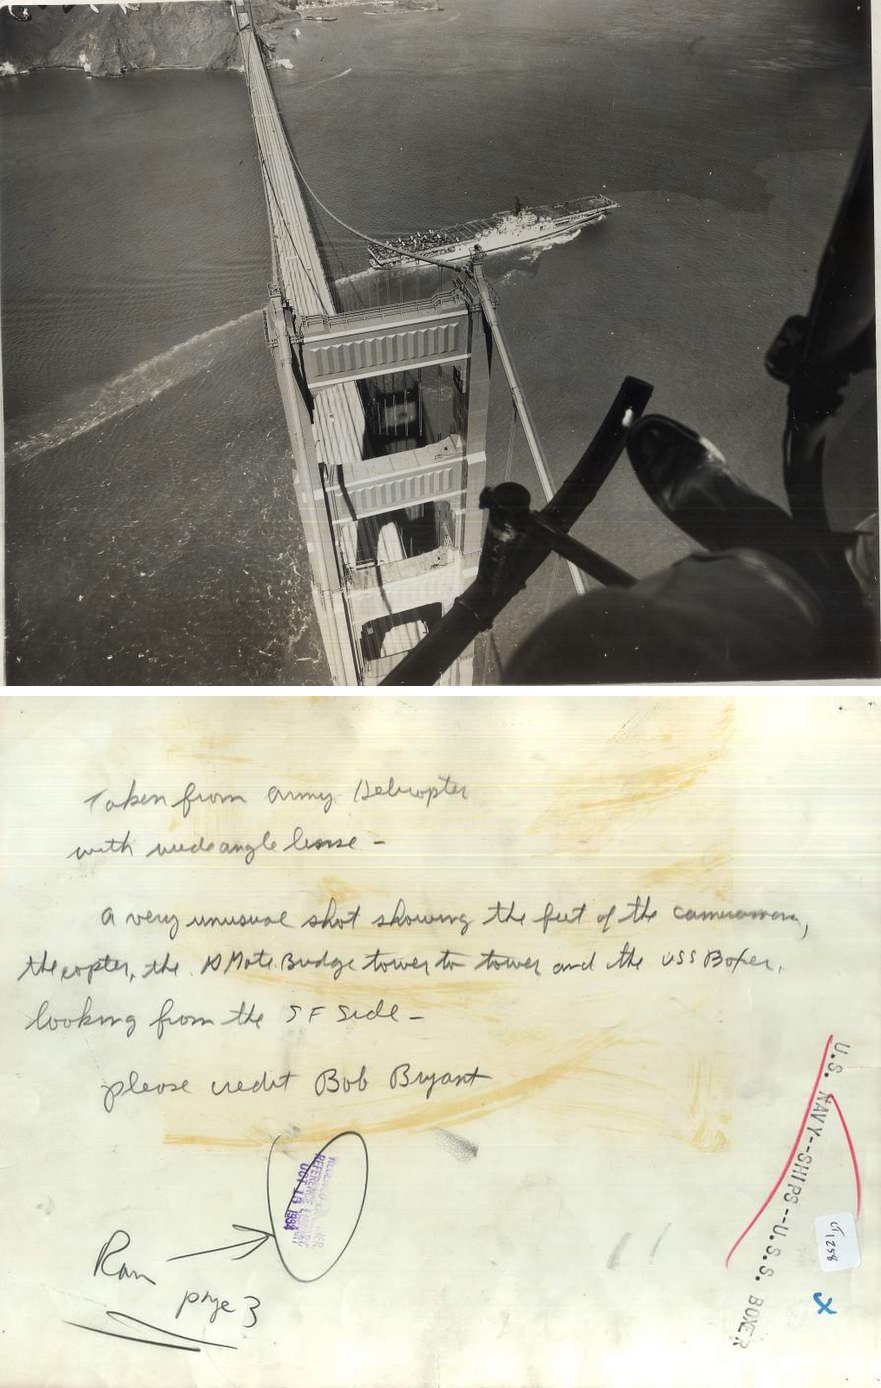 Taken from army Helicopter
with wideangle lense -
a very unusual shot showing the feet of the cameraman,
the copter, the Bridge tower to tower and the USS Boxer,
looking from the SF Side -
please credit Bob Bryant
REFERENCE LIBRARY
OCT 15 1954
Ran
page 3
U.S. NAVY--SHIPS--U.S.S. BOXER